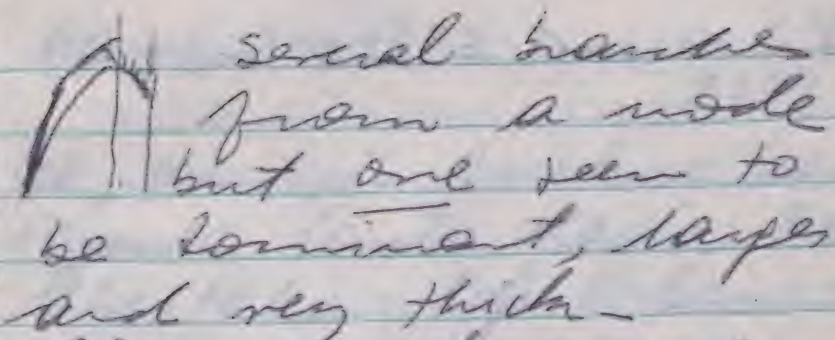 several branches
from a node
but one seem to
be dominant, larger
and very thick-